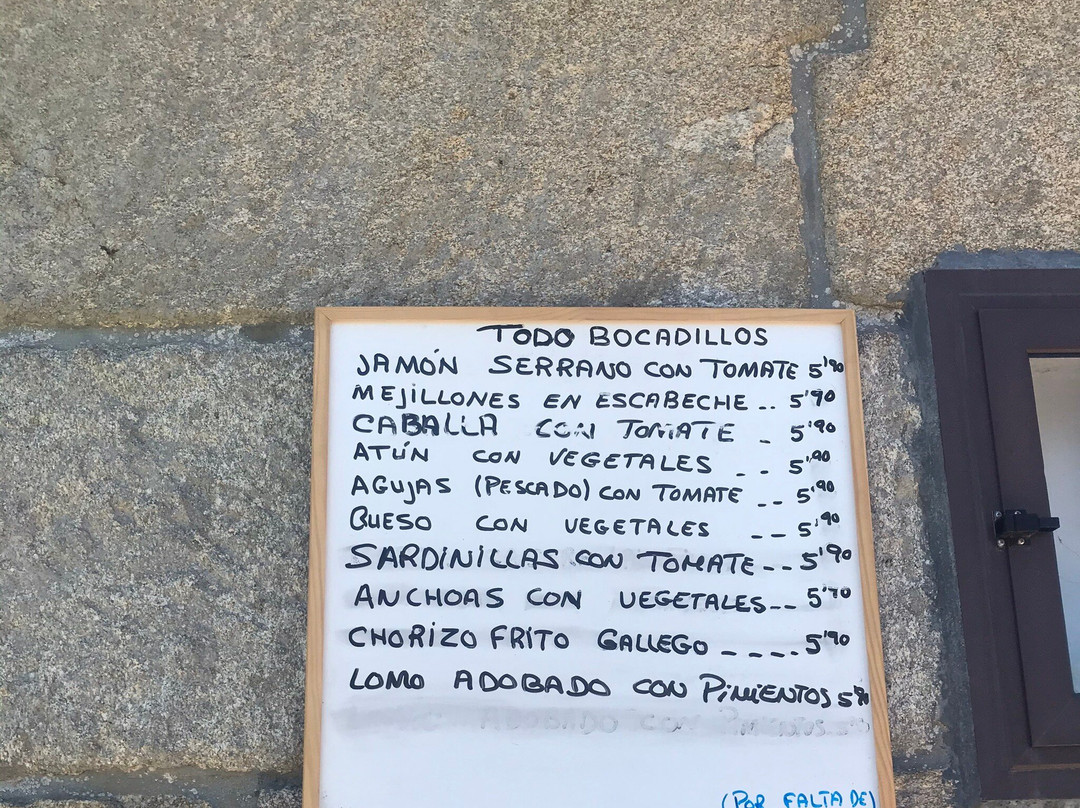 TODO BOCADILLOS
JAMÓN SERRANO CON TOMATE 5'90
MEJILLONES EN ESCABECHE .. 5'90
CABALLA CON TOMATE - 5'90
ATÚN CON VEGETALES -- 5'90
AGUJAS (PESCADO) CON TOMATE -- 5'90
QUESO CON VEGETALES -- 5'90
SARDINILLAS CON TOMATE -- 5'90
ANCHOAS CON VEGETALES -- 5'90
CHORIZO FRITO GALLEGO ---. 5'90
LOMO ADOBADO CON PIMIENTOS 5'90
ADOBADO CON PIMIENTOS
(POR FALTA DE)